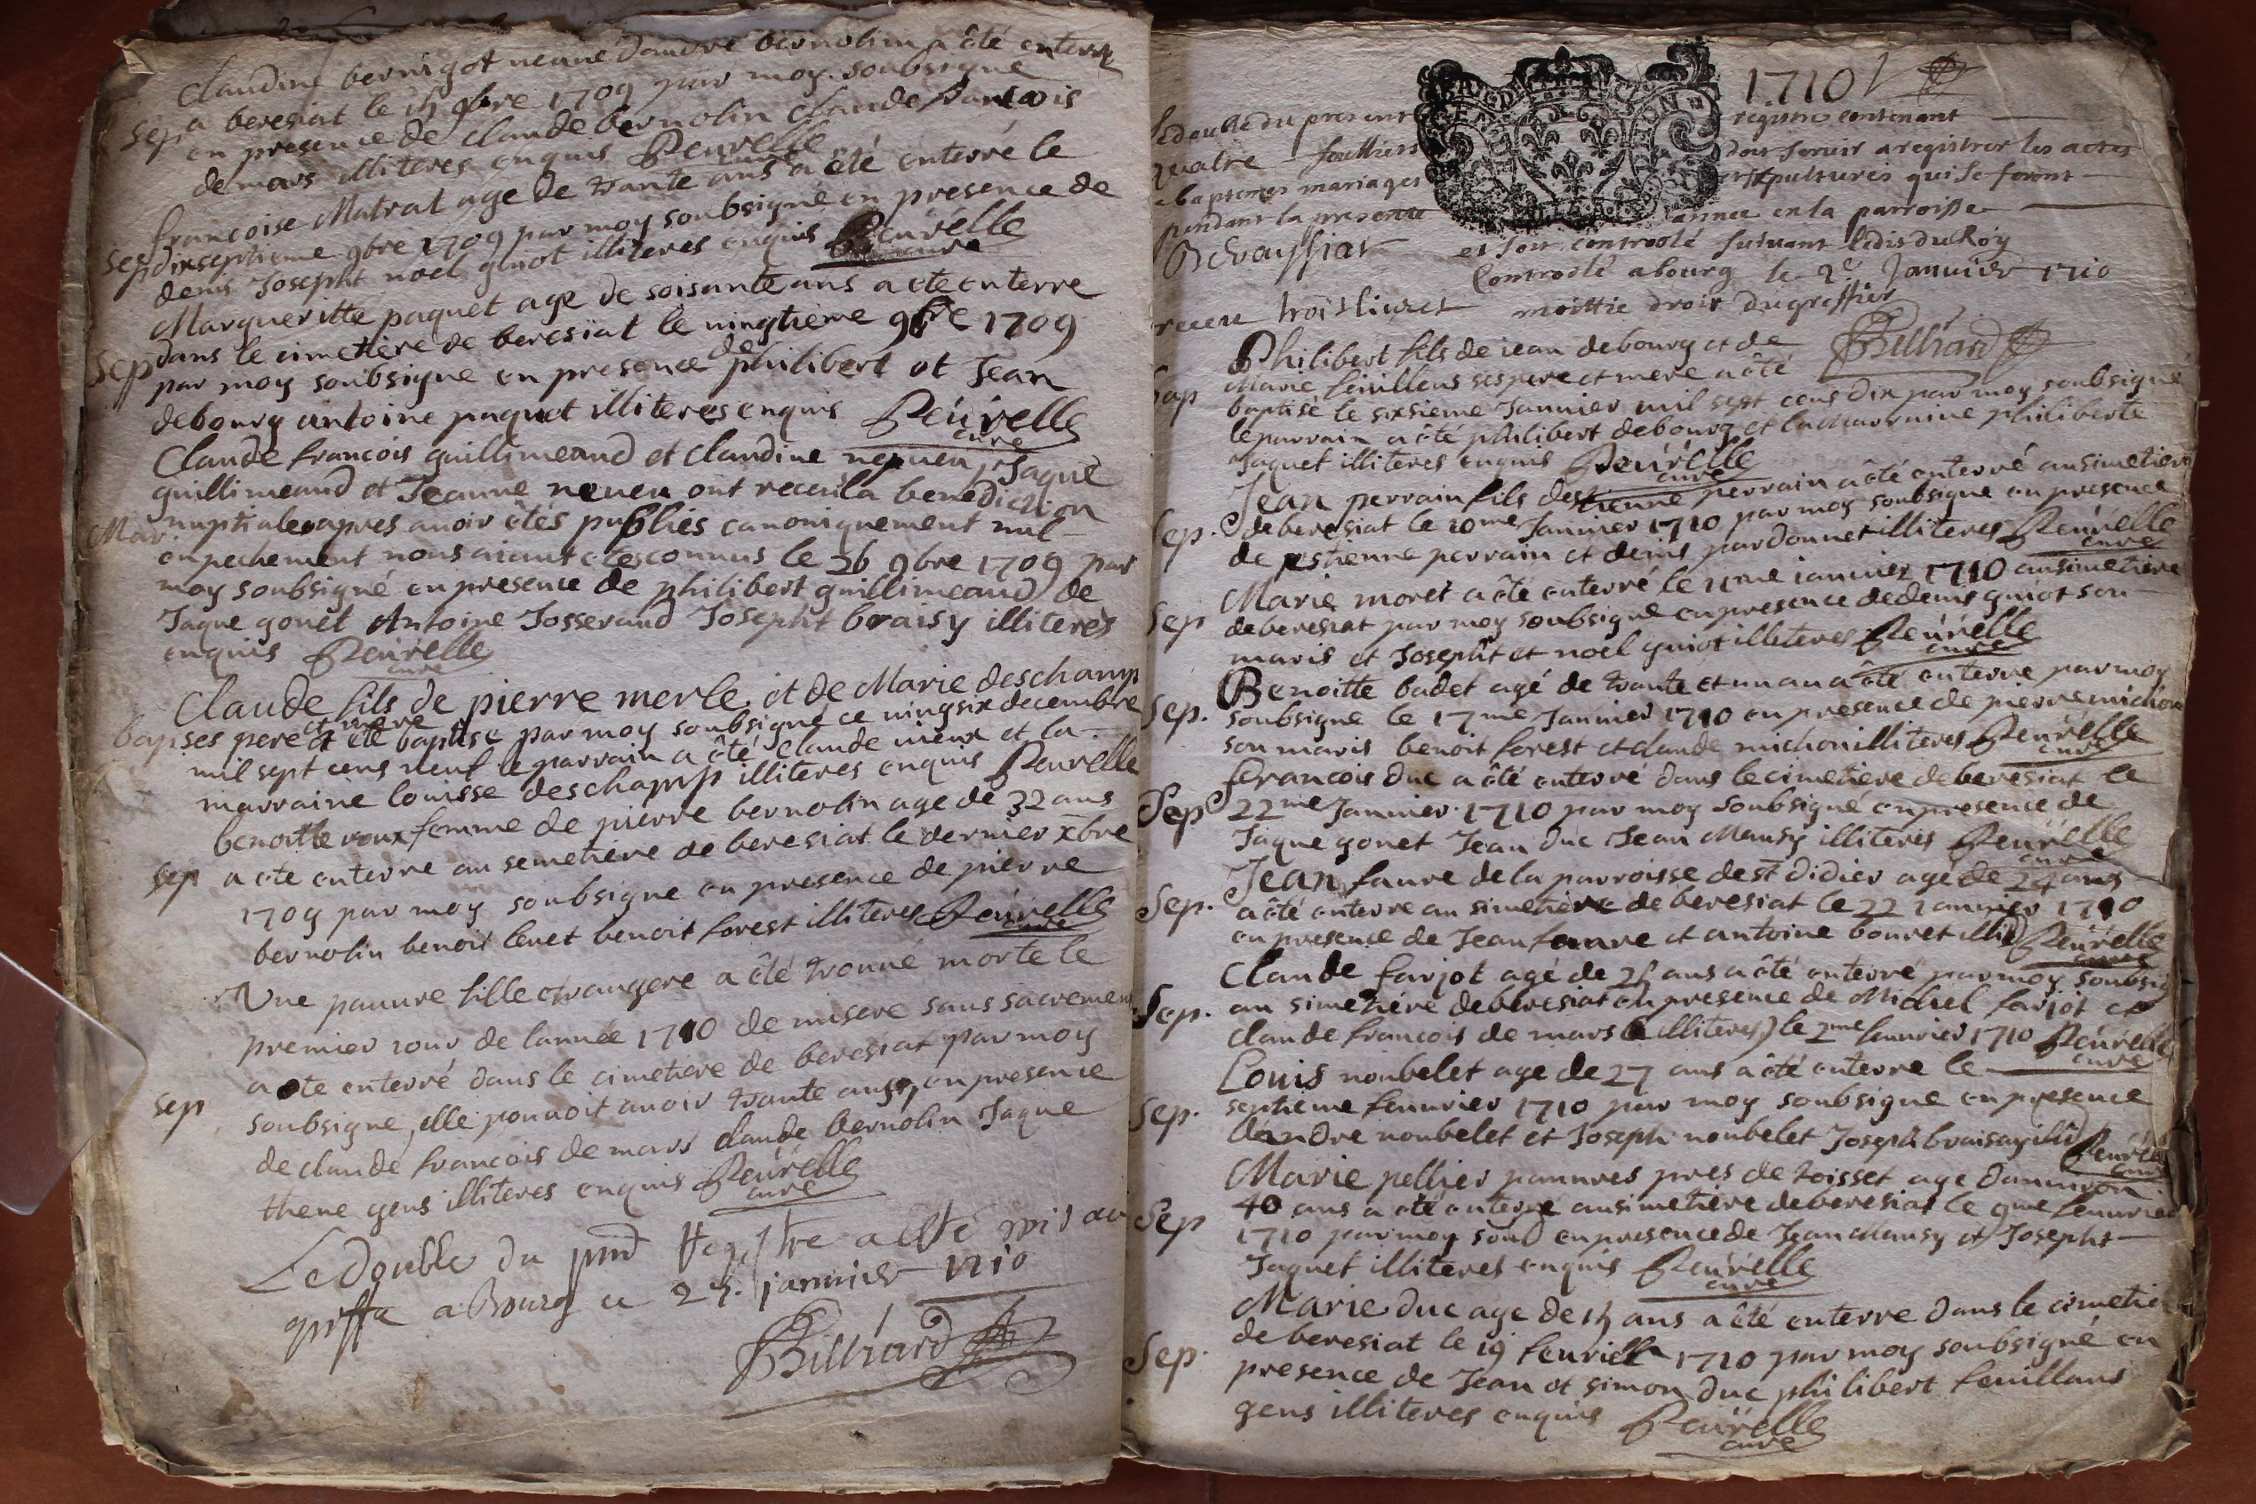 Claudine bernigot veuve dandre bernolin a été enterré
Sep a beresiat le 15 9bre 1709 par moy soubsigné
en presence de claude bernolin claude francois
de mars illiteres enquis Reurelle curé
francoise Matrat age de trante ans a été enterré le
Sep dixseptieme 9bre 1709 par moy soubsigné en presence de
denis Josepht noel guiot illiteres enquis Reurelle curé
Margueritte paquet age de soisante ans a ete enterre
Sep dans le cimetiere de beresiat le vingtieme 9bre 1709
par moy soubsigne en presence de philibert et Jean
debourg antoine paquet illiteres enquis Reurelle curé
Claude francois guillimeaud et Claudine neveu, Jaque
guillimeaud et Jeanne neveu ont receu la benediction
Mar. nuptiale apres avoir étés publiés canoniquement nul
enpechement nous aiant etes connus le 26 9bre 1709 par
moy soubsigné en presence de philibert guillimeaud de
Jaque gonet Antoine Josserand Josepht braisy illiteres
enquis Reurelle curé
Claude fils de pierre merle et de Marie deschamp
Bap ses pere et mere a été baptisé par moy soubsigné ce vingsix decembre
mil sept cens neuf le parrain a été claude vieux et la
marraine louisse deschamp illiteres enquis Reurelle
benoitte roux femme de pierre bernolin age de 32 ans
sep a ete enterre au semetiere de beresiat le dernier xbre
1709 par moy soubsigne en presence de pierre
bernolin benoit levet benoit forest illiteres Reurelle curé
Une pauvre fille etrangere a été trouvé morte le
premier iour de lannée 1710 de misere sans sacrement
a ete enterré dans le cimetiere de beresiat par moy
sep soubsigne, elle pouvoit avoir trante ans, en presence
de claude francois de mars claude bernolin Jaque
thene gens illiteres enquis Reurelle curé
Le double du pnt Registre a esté mis au
greffe a Bourg ce 25. janvier 1710
Billiard
1710
Le double du present registre contenant
quatre feuilliets doit servir a registrer les actes
baptemes mariages et sepultures qui se feront
pendant la presente annee en la parroisse
et soit controolé suivant ledis du Roy
Controolé a bourg le 2e Janvier 1710
receu trois livres moittie droit du greffier
Billiard
Philibert fils de iean debourg et de
Bap Marie feuillens ses pere et mere a été
baptisé le sixsieme Janvier mil sept cens dix par moy soubsigné
le parrain a été philibert debourg et la marraine philiberte
Jaquet illiteres enquis Reurelle curé
Jean perrain fils destienne perrain a été enterré au simetiere
Sep. de beresiat le 10me Janvier 1710 par moy soubsigne en presence
de estienne perrain et denis pardonnet illiteres Reurelle curé
Marie moret a été enterré le 11me ianvier 1710 au simetiere
Sep de beresiat par moy soubsigne en presence de denis guiot son
maris et Josepht et noel guiot illiteres Reurelle curé
Benoitte badet agé de trante et un an a été enterre par moy
Sep. soubsigne le 17me Janvier 1710 en presence de pierre michon
son maris benoit forest et claude michon illiteres Reurelle curé
francois duc a été enterré dans le cimetiere de beresiat le
Sep 22me Janvier 1710 par moy soubsigné en presence de
Jaque gonet Jean duc Jean Mansy illiteres Reurelle curé
Jean faure de la parroisse de st didier agé de 24 ans
Sep. a été enterre au simetiere de beresiat le 22 ianvier 1710
en presence de Jean faure et antoine bouret illit Reurelle curé
Claude farjot agé de 25 ans a été enterré par moy soubsig
Sep. au simetiére de beresiat en presence de Michel farjot et
claude francois de mars illiteres le 2me fevvrier 1710 Reurelle curé
Louis noubelet age de 27 ans a été enterre le
Sep. septieme fevvrier 1710 par moy soubsigne en presence
dandre noubelet et Joseph noubelet Joseph braisay illit Reurelle curé
Marie pellier pauvres pres de toisset age danviron
Sep 40 ans a été enterre au simetiere de beresiat le 9me fevvrier
1710 par moy soub en presence de Jean Mansy et Josepht
Jaquet illiteres enquis Reurelle curé
Marie duc age de 15 ans a été enterre dans le cimetie
Sep. de beresiat le 19 fevrier 1710 par moy soubsigné en
presence de Jean et simon duc philibert feuillans
gens illiteres enquis Reurelle curé